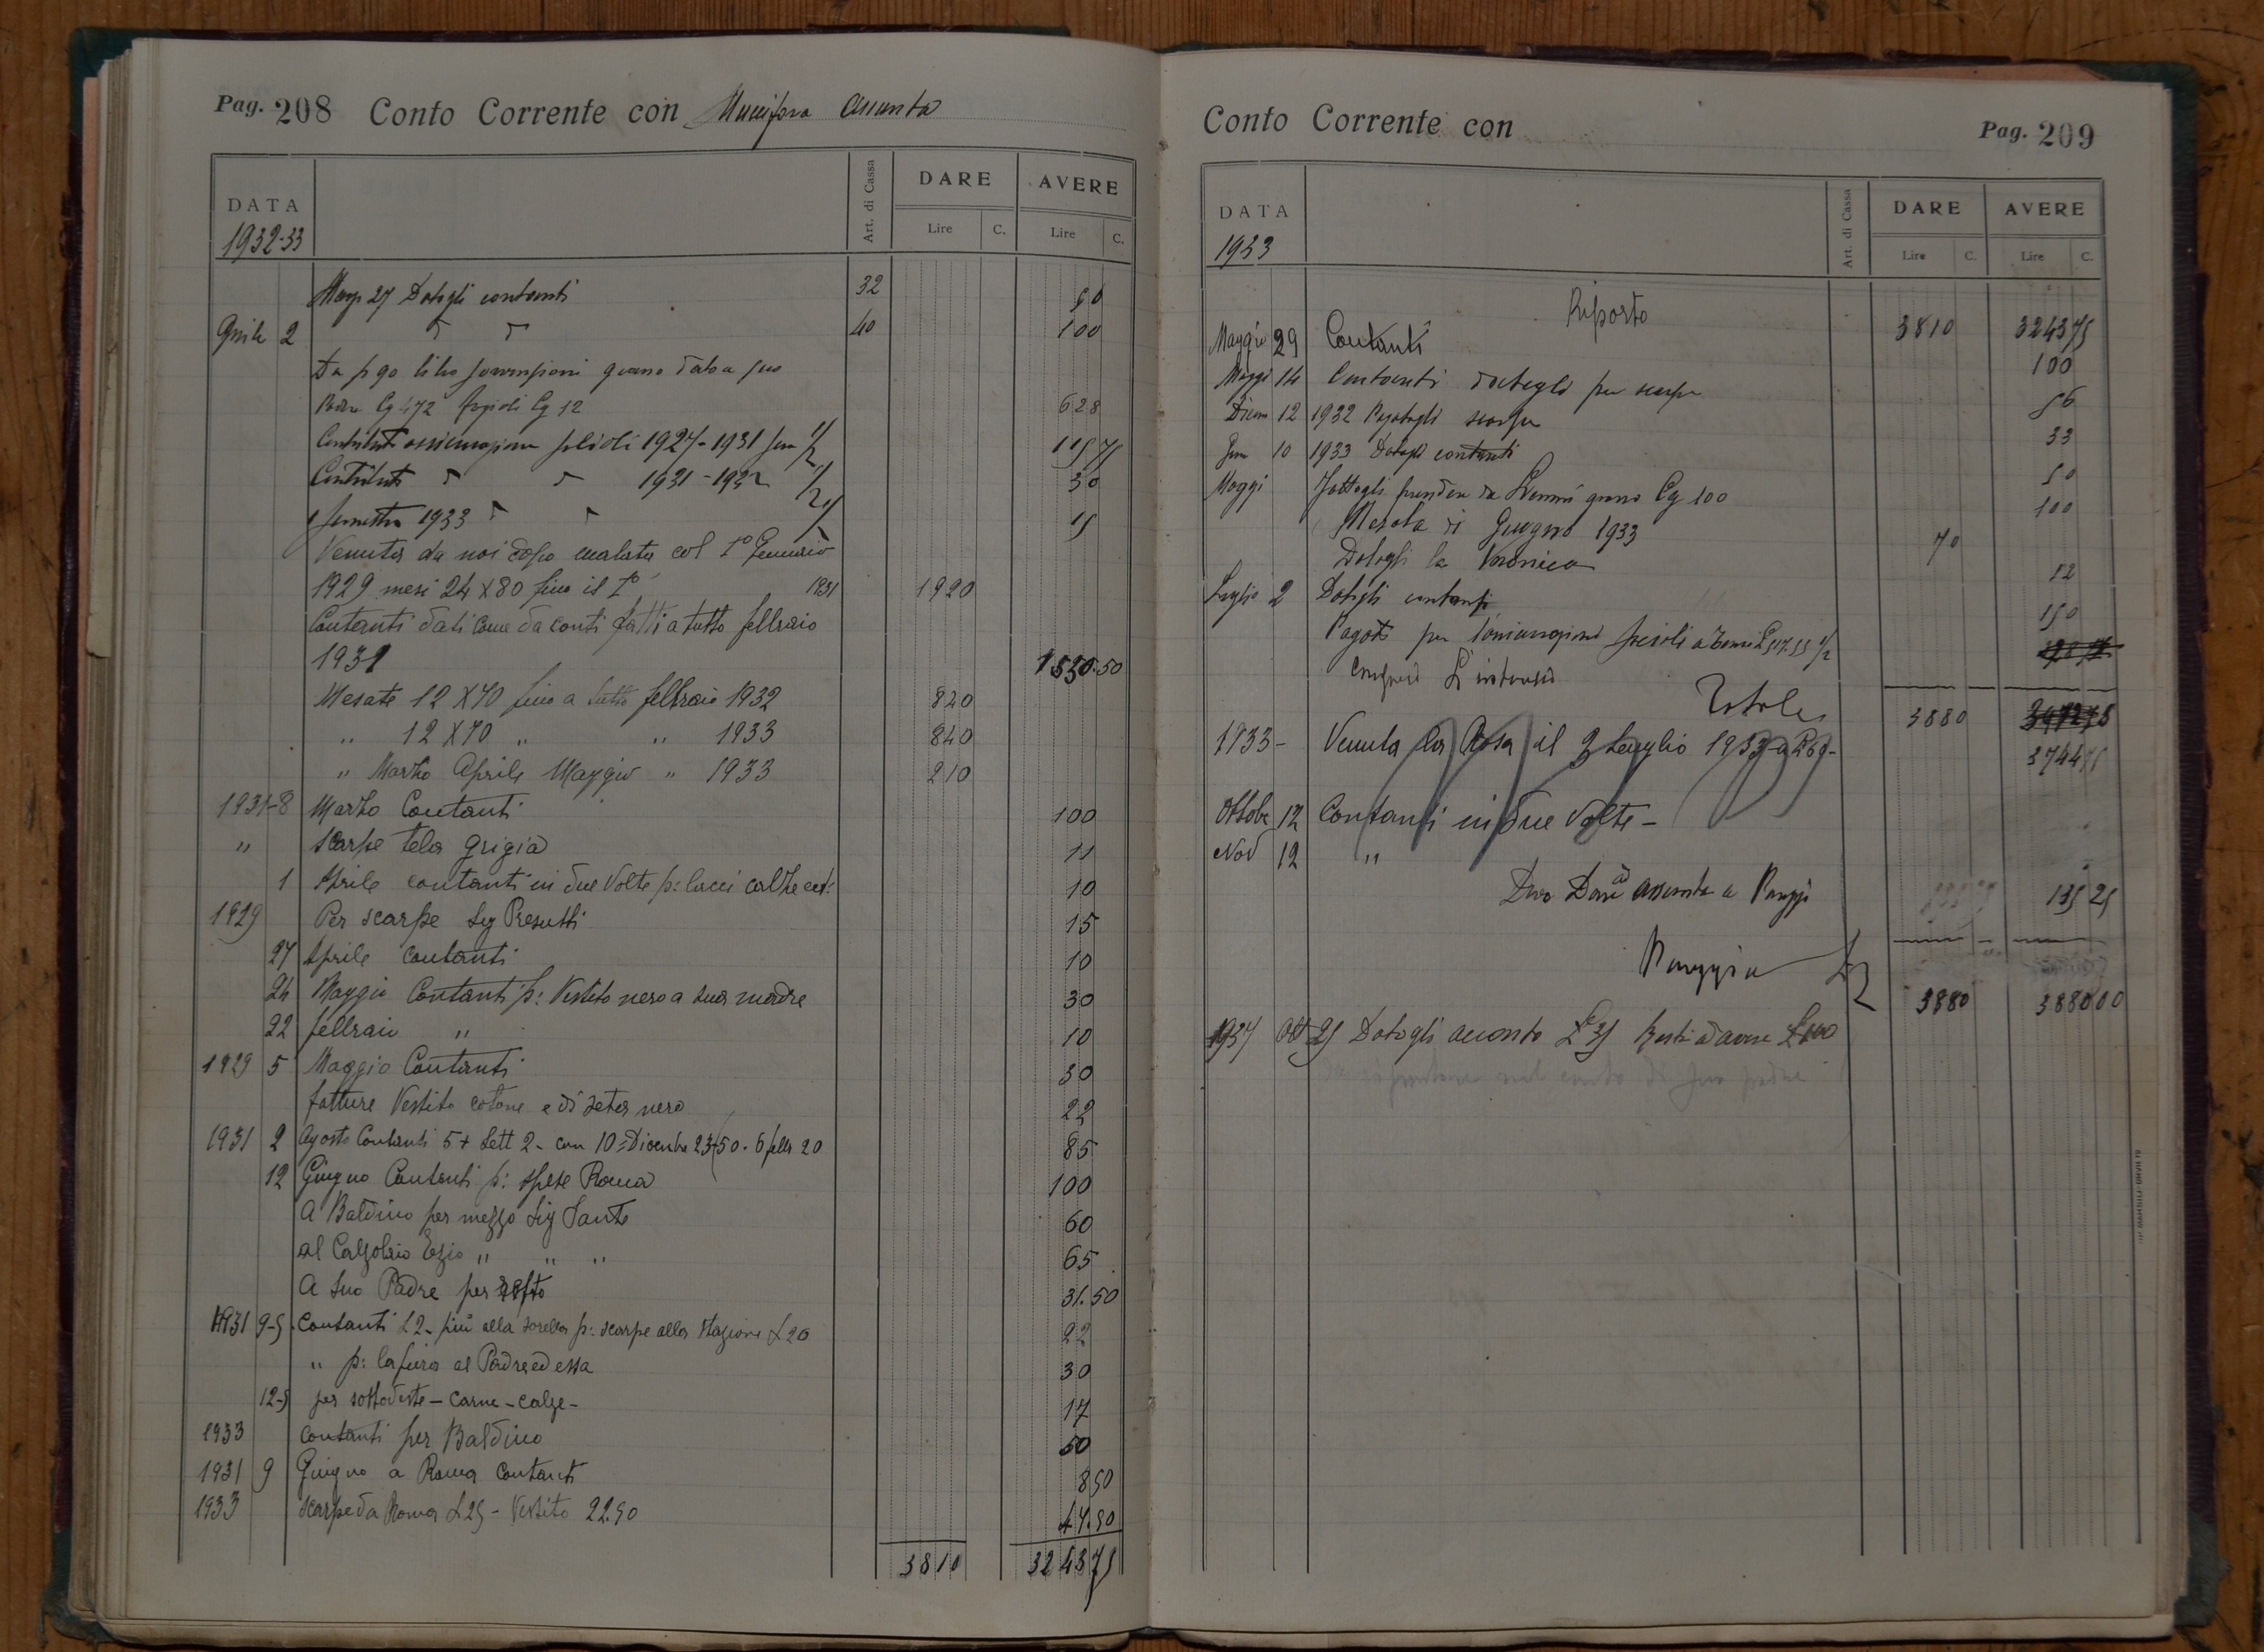 Pag. 208 Conto Corrente con Assunta
DATA Art. di Cassa DARE AVERE
Lire C. Lire C.
1932-33
27 Datogli contanti 32 50
Aprile 2 " " 40 100
Cg 472 Cg 12 628
Contributi assicurazione 1927-1931 1/2 115 75
Contributi " " 1931-1932 1/2 30
Semestre 1933 " " 1/2 15
Venuta da noi dopo malata col 1º Gennaio
1929 mesi 24 X 80 fino il 1º 1931 1920
Contanti dati come da conti fatti a tutto febbraio
1931 1530.50
Mesate 12 X 70 fino a tutto febbraio 1932 840
" 12 X 70 " " 1933 840
" Marzo Aprile Maggio " 1933 210
1931-8 Marzo Contanti 100
" Scarpe tela grigia 11
1 Aprile contanti in due Volte p: lacci calze ect: 10
1929 Per scarpe Sig Presutti 15
27 Aprile contanti 10
24 Maggio Contanti p: Vestito nero a sua madre 30
22 febbraio " 10
1929 5 Maggio Contanti 30
fatture Vestito cotone e di seta nero 22
1931 2 Agosto Contanti 5 + Sett 2- con 10 = Dicembre 23-50. 6 febb 20 85
12 Giugno Contanti p: spese Roma 100
A Baldino per mezzo Sig Sante 60
al Calzolaio Ezio " " " 65
A Suo Padre per 31.50
1931 9-5 Contanti £2- più alla sorella p: scarpe alla Stagione £20 22
" p: la fiera al Padre ed essa 30
12-5 per sottoveste - carne - calze- 17
1933 contanti per Baldino 50
1931 9 Giugno a Roma Contanti 850
1933 scarpe da Roma £25 - Vestito 22.50 47.50
3810 3243 75
Conto Corrente con Pag. 209
DATA Art. di Cassa DARE AVERE
Lire C. Lire C.
1933
Riporto 3810 3243 75
Maggio 29 Contanti 100
Maggi 14 Contanti datogli per scarpe 56
Dicem 12 1932 Pagatogli scarpe 33
Gen 10 1933 Datogli contanti 50
Maggi Fattogli prendere da grano Cg 100 100
Mesata di Giugno 1933 70
Datogli la Veronica 12
Luglio 2 Datogli contanti 150
Pagati per 1/2
Totale 3880 3744 75
1933- Venuta la Rosa il 2 Luglio 1933 a £60-
Ottobe 12 Contanti in due Volte-
Nov 12 "
Assunta a 135 25
3880 3880 00
1937 Ott 25 Datogli acconto £ 35 Resta d avere £100